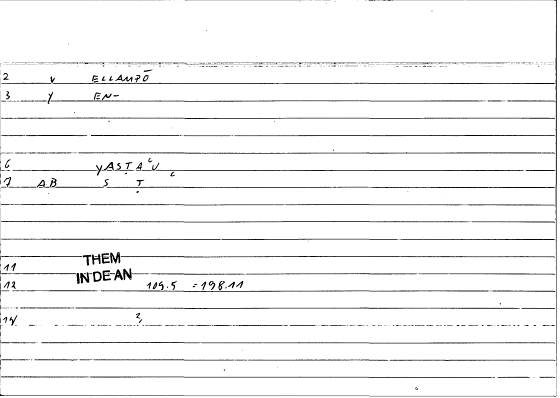 2 v ELLAMPŌ
3 y EN-
6 yAṢṬAʿU
7 AB S Ṭ
11 THEM
IN DE AN
12 109.5 = 198.11
14 2,